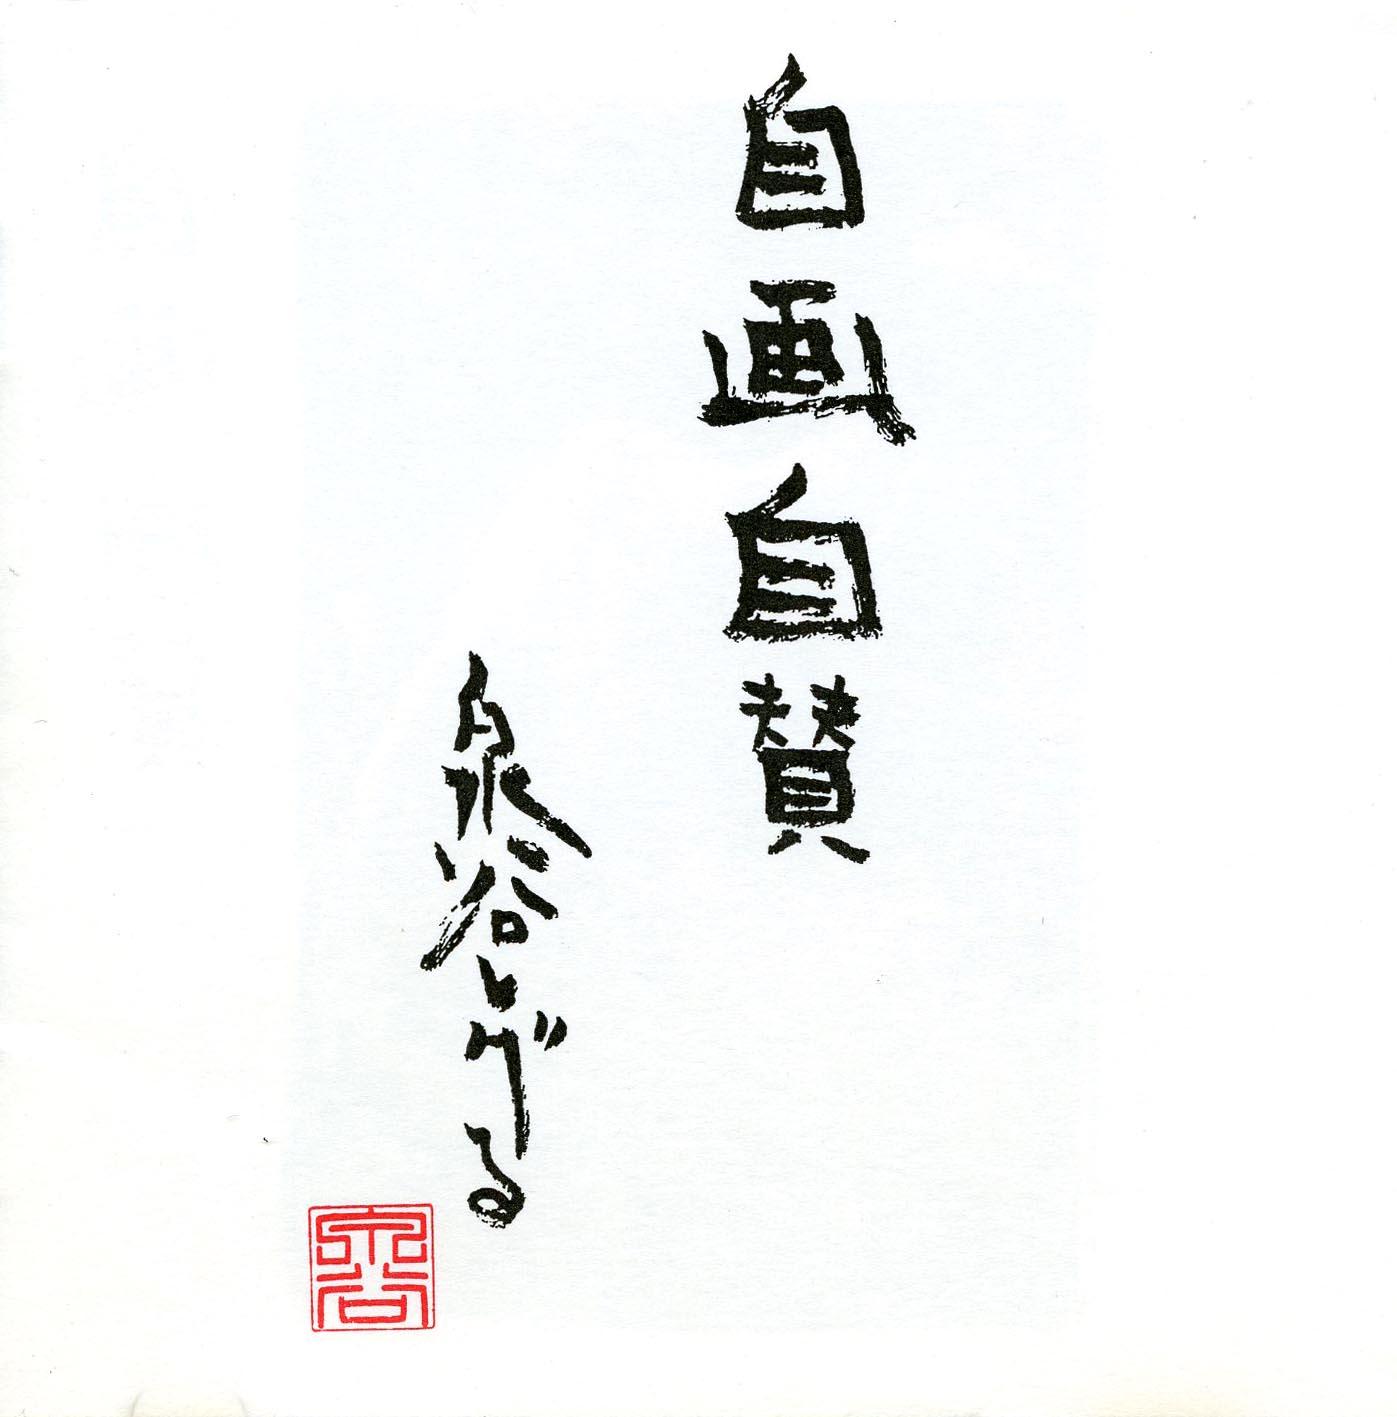 自画自賛
泉谷しげる
泉谷